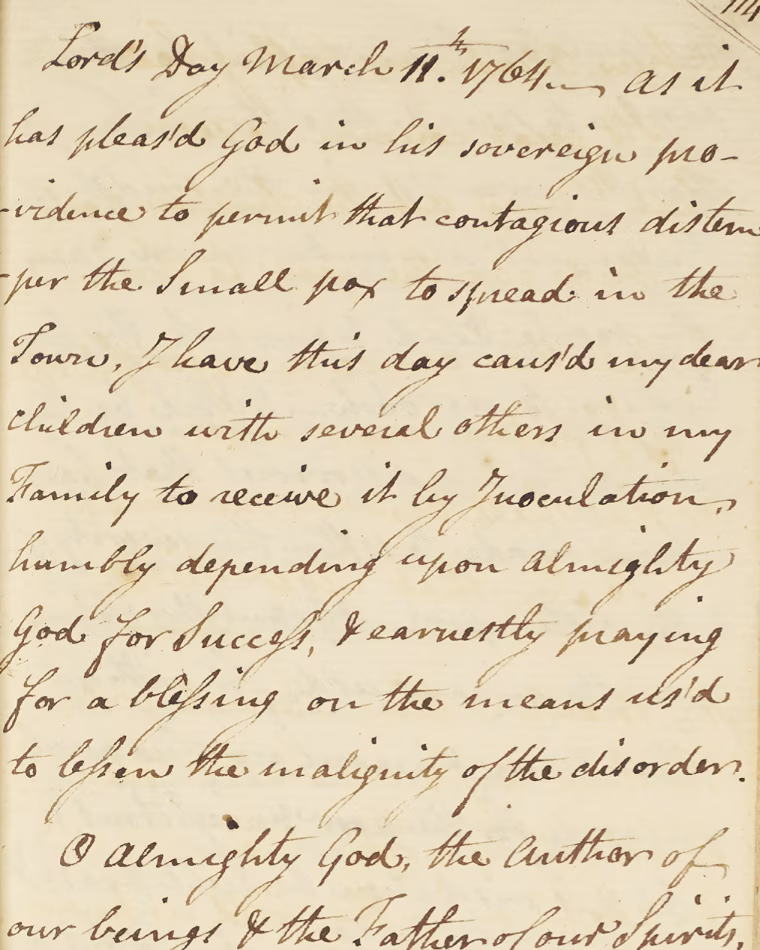 114
Lord's Day March 11.th 1764. — as it
has pleas'd God in his sovereign pro-
-vidence to permit that contagious distem
-per the Small pox to spread in the
Town, I have this day caus'd my dear
children with several others in my
Family to receive it by Inoculation,
humbly depending upon almighty
God for Success, & earnestly praying
for a blessing on the means us'd
to lessen the malignity of the disorder.
O almighty God, the author of
our beings & the Father of our Spirits,